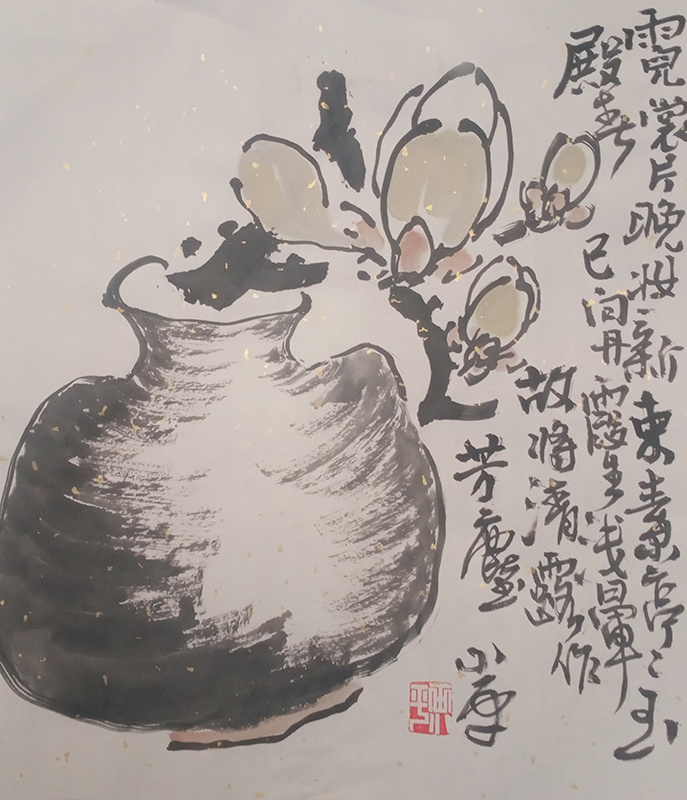 霓裳片晚妆新束素亭々玉
殿春
已向丹霞生浅暈
故将清露作
芳塵